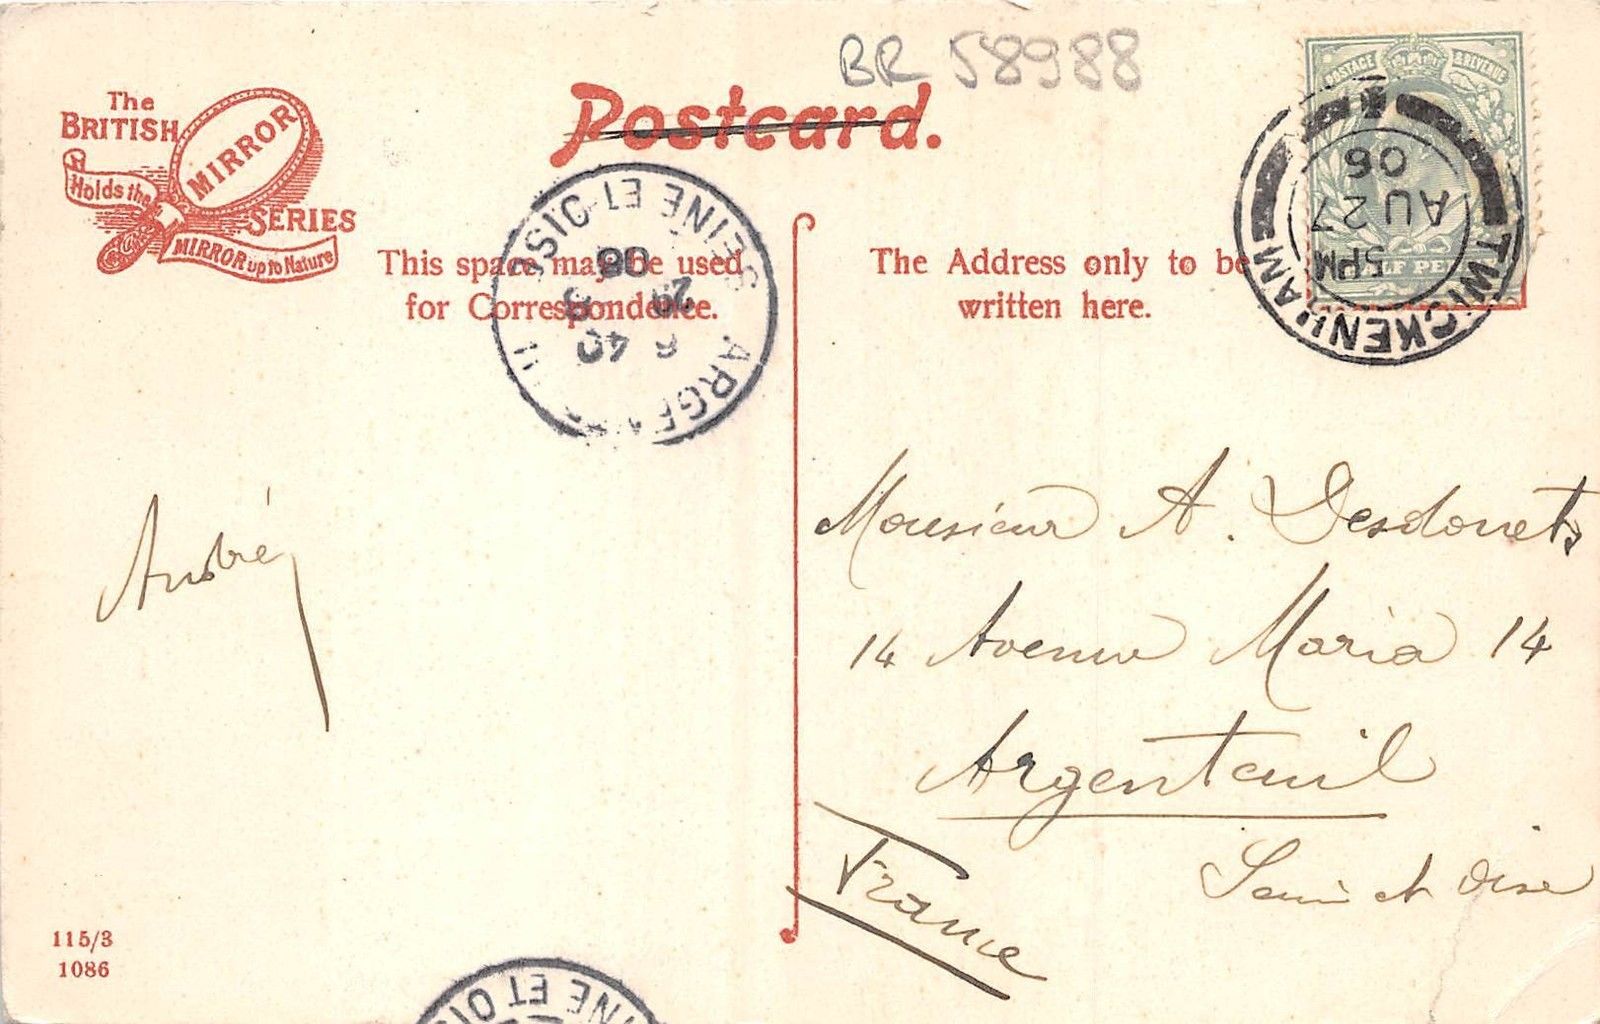 BR 58988
Postcard.
The
BRITISH
MIRROR
SERIES
Holds the
MIRROR up to Nature
This space may be used
for Correspondence.
The Address only to be
written here.
POSTAGE & REVENUE
HALF PE
TWICKENHAM
5 PM
AU 27
06
1
SEINE ET OISE
ARGEN
6 40
29
8
06
Monsieur A. Desdouets
14 Avenue Maria 14
Argenteuil
Seine et Oise
France
André
115/3
1086
INE ET OIS